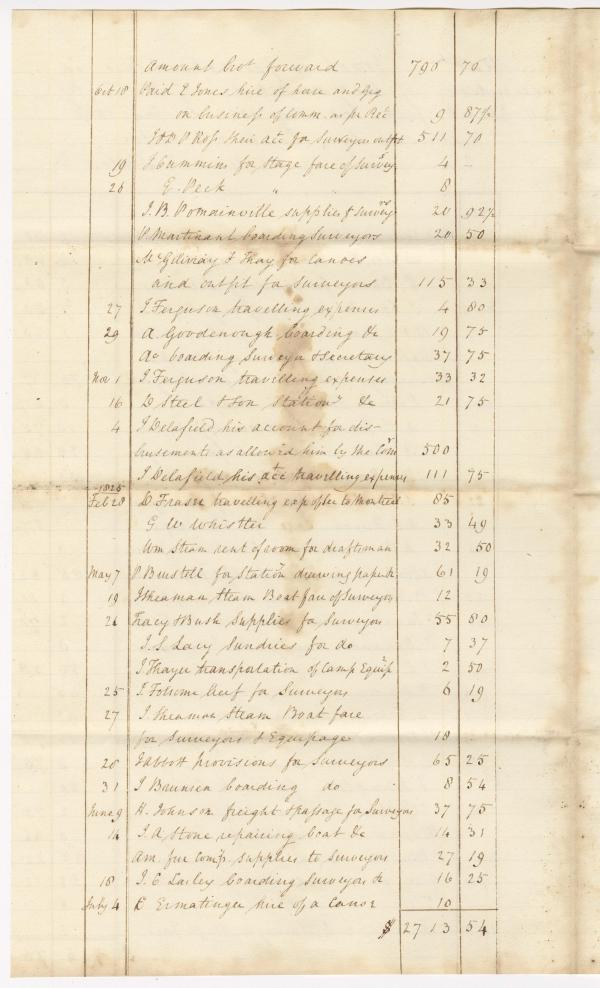 Amount brot forward 790 70
Oct 18 Paid L Jones hire of horse and Gig
on business of Comm. as pr Rect 9 87½
J & P Ross their acct for Surveyors outfit 511 70
19 J. Cummins for Stage fare of Surveyr 4 –
26 E. Peck " " 8
J. B. Pomainville supplies f survey 20 92½
P. Martinant boarding Surveyors 20 50
McGilivray & Thay for Canoes
and outfit for Surveyors 115 33
27 J. Ferguson travelling expenses 4 80
29 A. Goodenough boarding &c 19 75
Ao boarding Surveyor & Secretary 37 75
Nov 1 J. Ferguson travelling expenses 33 32
16 D Steel & Son Stationy &c 21 75
4 J Delafield his account for dis-
bursements as allowed him by the Comr 500
J Delafield his acct travelling expenses 111 75
1825
Feb 28 D Fraser travelling exp to Montreal 85
G W Whistler 33 49
Wm Steam rent of room for draftsman 32 50
May 7 P. for Staty drawing paper &c 61 19
19 J Sherman Steam Boat fare of Surveyors 12
21 Tracy & Bush Supplies for Surveyors 55 80
J. S. Lacy Sundries for do 7 37
J. Thayer transportation of Camp Equip 2 50
25 J. Folsome beef for Surveyors 6 19
27 J. Sherman Steam Boat fare
for Surveyors & Equipage 18
28 J abbott provisions for Surveyors 65 25
31 J Brunsen boarding do 8 54
June 9 H. Johnson freight & passage for Surveyors 37 75
14 J. A Stone repairing boat &c 14 31
Am. fur Compy supplies to Surveyors 27 19
18 J. C boarding Surveyors &c 16 25
July 4 C Ermatinger hire of a Canoe 10
$ 2713 54